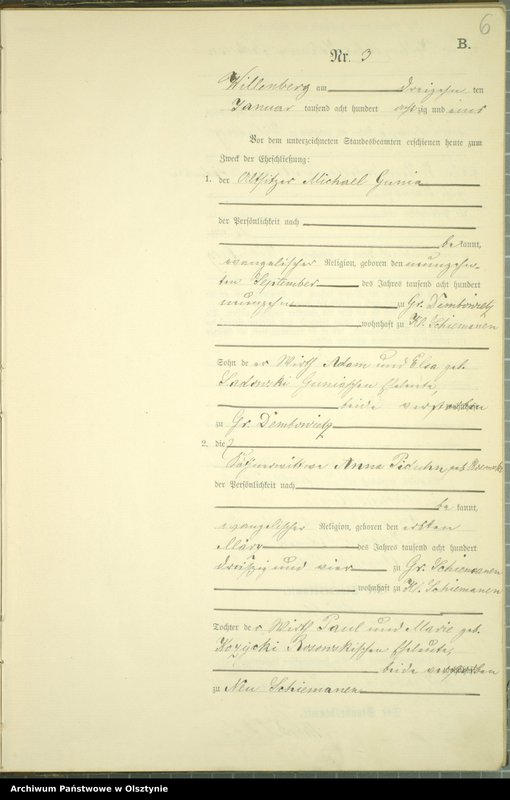 6
B.
Nr. 3
Willenberg am dreizehn ten
Januar tausend acht hundert achtzig und eins
Vor dem unterzeichneten Standesbeamten erschienen heute zum
Zweck der Eheschließung:
1. der Altsitzer Michael Gunia
der Persönlichkeit nach
be kannt,
evangelischer Religion, geboren den neunzehn-
ten September des Jahres tausend acht hundert
neunzehn zu Gr. Dembowietz
wohnhaft zu Kl. Schiemanen
Sohn de er Wirth Adam und Elsa geb.
Sadowski Guniaschen Eheleute,
beide verstorben
zu Gr. Dembowietz
2. die
Anna Piduhn geb.
der Persönlichkeit nach
be kannt,
evangelischer Religion, geboren den ersten
März des Jahres tausend acht hundert
dreißig und vier zu Gr. Schiemanen
wohnhaft zu Kl. Schiemanen
Tochter de er Wirth Paul und Marie geb.
Kozycki Eheleute,
beide verstorben
zu Neu Schiemanen
Archiwum Państwowe w Olsztynie